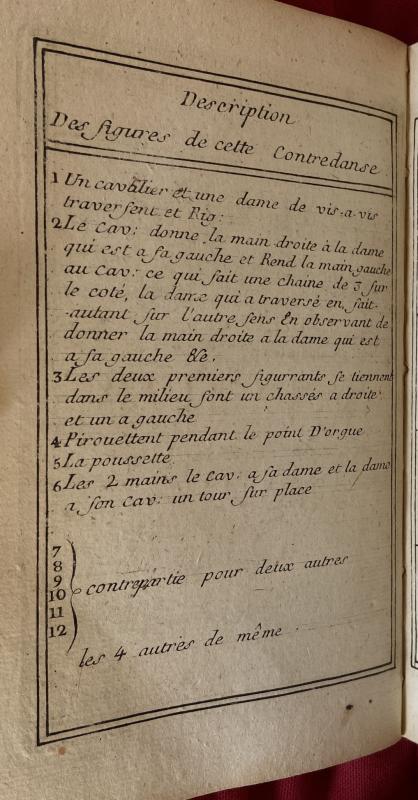 Description
Des figures de cette Contredanse
1 Un cavalier et une dame de vis-a-vis
traversent et Rig:
2 Le Cav: donne la main droite à la dame
qui est a sa gauche et Rend la main gauche
au Cav: ce qui fait une chaine de 3 sur
le coté, la dame qui a traversé en fait-
-autant sur l'autre sens En observant de
donner la main droite a la dame qui est
a sa gauche &c.
3 Les deux premiers figurrants se tiennent
dans le milieu font un chassés a droite
et un a gauche
4 Pirouettent pendant le point D'orgue
5 La poussette
6 Les 2 mains le Cav: a sa dame et la dame
a son Cav: un tour sur place
7
8
9
10 contrepartie pour deux autres
11
12
les 4 autres de même